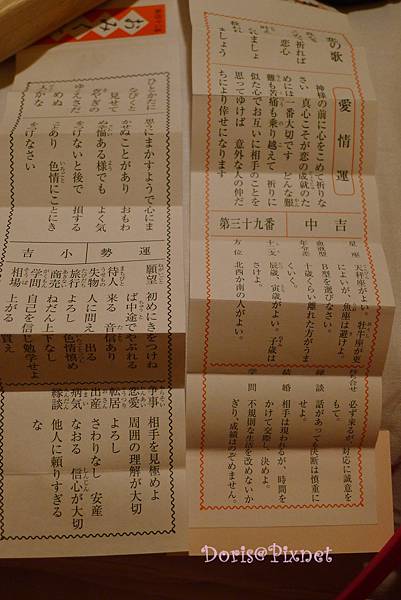 恋の歌
祈れば
恋心
ましょ
しょう
愛情運
神様の前に心をこめて祈りな
さい 真心こそが恋の成就のた
めには一番大切です どんな艱
難も苦痛も乗り越えて 祈りに
似た心でお互いに相手のことを
思ってゆけば 意外な人の仲だ
ちにより倖せになります
中吉
第三十九番
星座 天秤座がよい。牡牛座が更
によいが、魚座は避けよ。
血液型 B型を選びなさい。
年令差 十歳くらい離れた方がうま
くいく。
十二支 辰歳、寅歳がよい。子歳は
さけよ。
方位 北西か南の人がよい。
問合せ 必ず来るが、対応に誠意を
もて。
縁談 話があっても決断は慎重に
せよ。
結婚 相手は現われるが、時間を
かけてる際に 決めよ。
学問 不規則な生活を改めないか
ぎり、成績はのぞめません。
おみくじ
ひとかたに
なびくと
見せて
青やぎの
ゆえさだ
めぬ
人ごころ
かな
思にまかすようで心にま
かぬことがあり おもわ
ぬ悩ある様でも よく気
をけないと後で 損する
あり 色情にことにき
をけなさい
運勢
小吉
願望 初めにきをつけね
ば中途でやぶれる
待人 来る 音信あり
失物 人に問え 出る
旅行 よろし 色情慎め
商売 ねだん上下なし
学問 自己を信じ勉学せよ
相場 上がる 買え
争事 相手を見極めよ
恋愛 周囲の理解が大切
転居 よろし
出産 さわりなし 安産
病気 なおる 信心が大切
縁談 他人に頼りすぎる
な
Doris@Pixnet